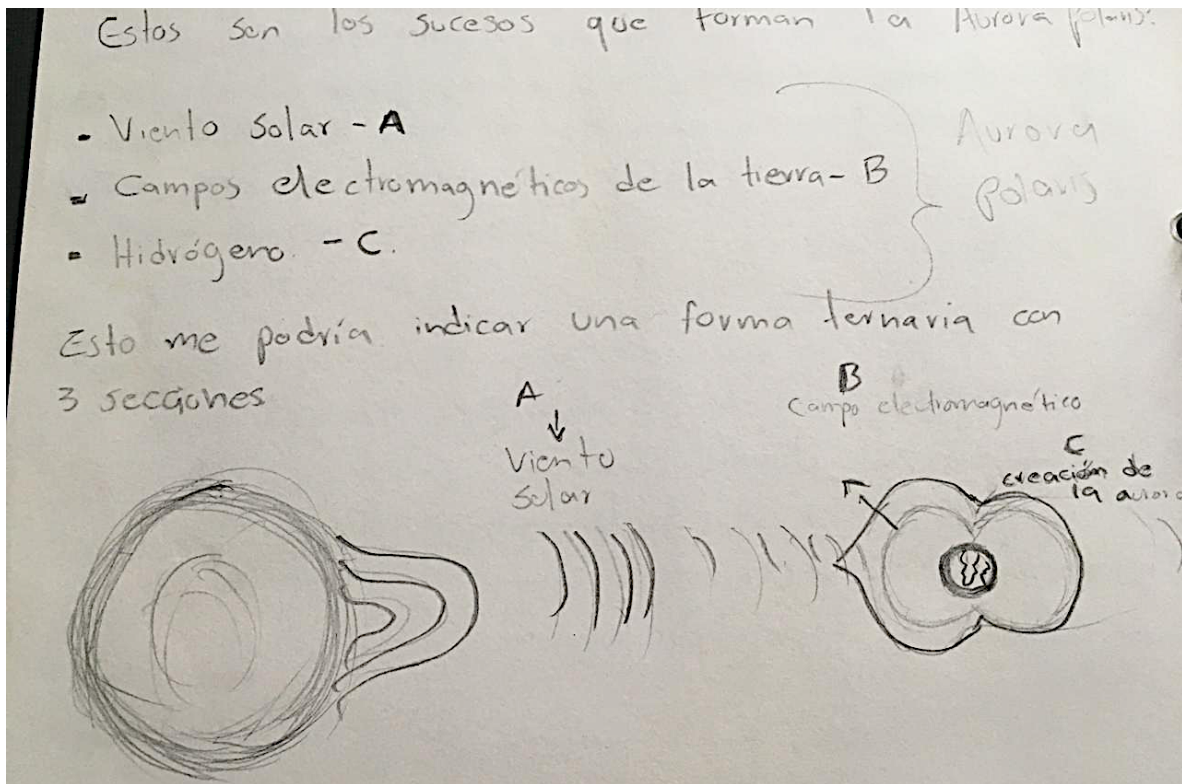 Estos son los sucesos que forman la Aurora polaris.
- Viento Solar - A
- Campos electromagnéticos de la tierra - B
- Hidrógeno. - C.
Aurora
polaris
Esto me podría indicar una forma ternaria con
3 secciones
A
Viento
Solar
B
Campo electromagnético
C
creación de
la aurora